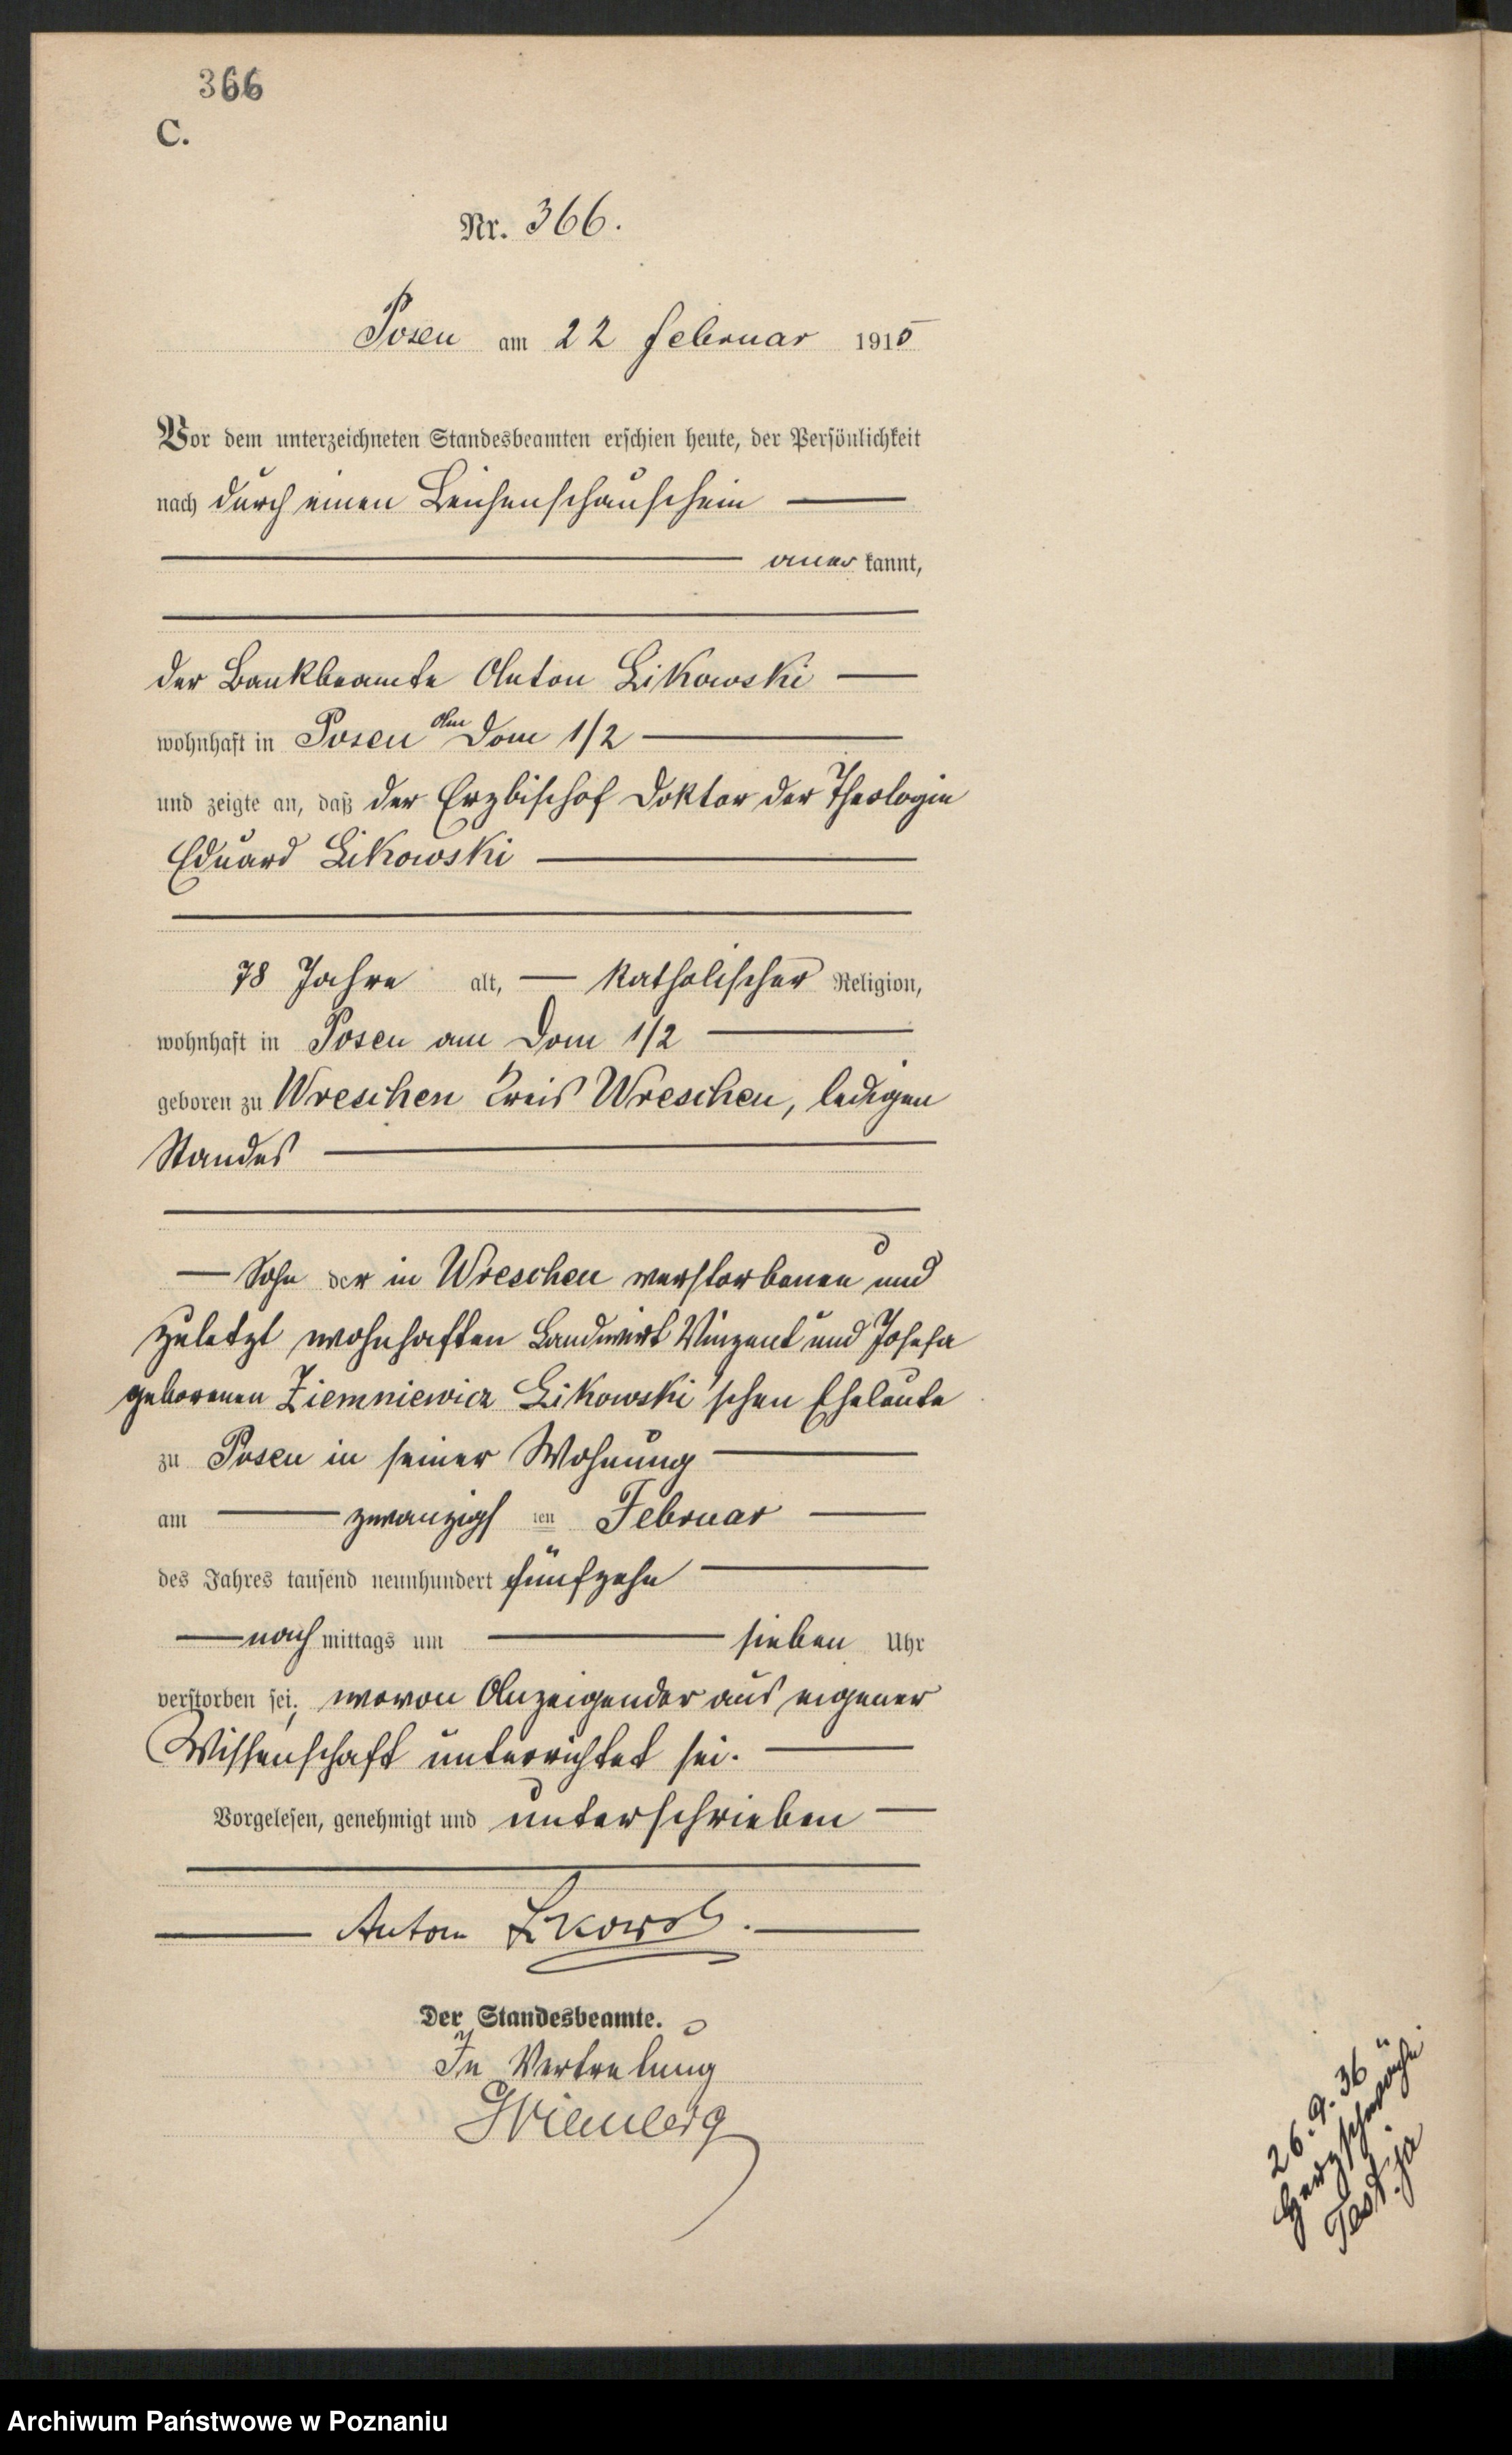 366
C.
Nr. 366.
Posen am 22 Februar 1915
Vor dem unterzeichneten Standesbeamten erschien heute, der Persönlichkeit
nach durch einen Leichenschauschein
aner kannt,
der Bankbeamte Anton Likowski
wohnhaft in Posen Am Dom 1/2
und zeigte an, daß der Erzbischof Doktor der Theologie
Eduard Likowski
78 Jahre alt, katholischer Religion,
wohnhaft in Posen am Dom 1/2
geboren zu Wreschen Kreis Wreschen, ledigen
Standes
Sohn der in Wreschen verstorbenen und
zuletzt wohnhaften Landwirt Vinzent und Josefa
geborenen Ziemniewicz Likowski'schen Eheleute
zu Posen in seiner Wohnung
am zwanzigs ten Februar
des Jahres tausend neunhundert fünfzehn
nach mittags um sieben Uhr
verstorben sei; wovon Anzeigender aus eigener
Wissenschaft unterrichtet sei.
Vorgelesen, genehmigt und unterschrieben
Anton Likowski.
Der Standesbeamte.
In Vertretung
26. 9. 36
Herzschwäche
Test. ja
Archiwum Państwowe w Poznaniu